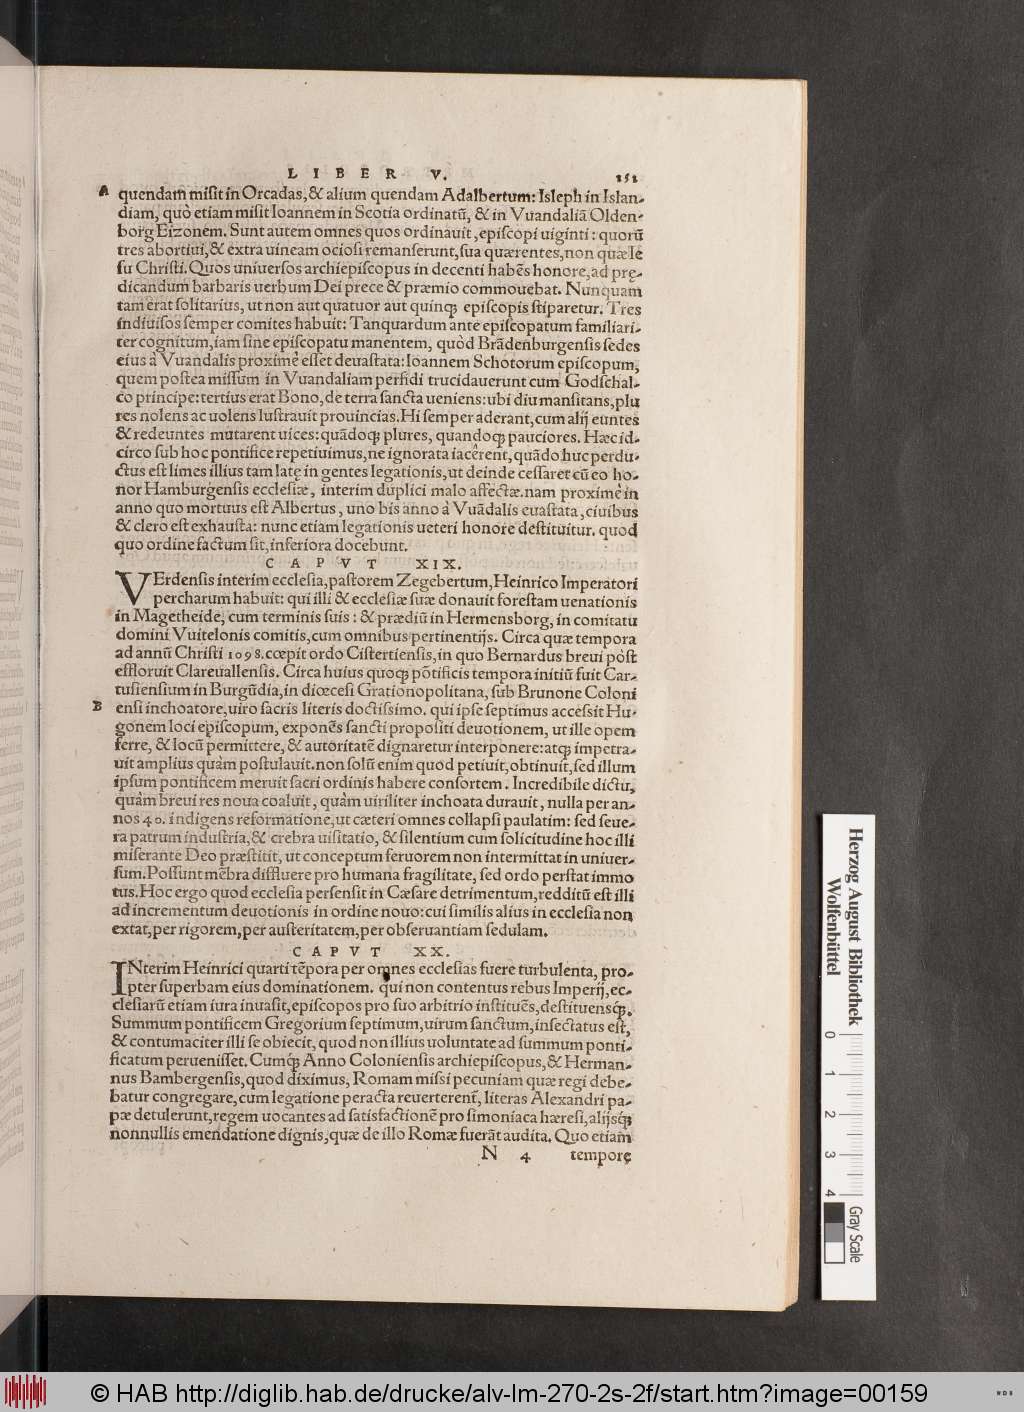 LIBER V. 151
A quendam misit in Orcadas, & alium quendam Adalbertum: Isleph in Islan-
diam, quò etiam misit Ioannem in Scotia ordinatũ, & in Vuandaliã Olden-
borg Eizonem. Sunt autem omnes quos ordinauit, episcopi uiginti: quorũ
tres abortiui, & extra uineam ociosi remanserunt, sua quærentes, non quæ Ie
su Christi. Quos uniuersos archiepiscopus in decenti habẽs honore, ad prę-
dicandum barbaris uerbum Dei prece & præmio commouebat. Nunquam
tam erat solitarius, ut non aut quatuor aut quinq; episcopis stiparetur. Tres
indiuisos semper comites habuit: Tanquardum ante episcopatum familiari-
ter cognitum, iam sine episcopatu manentem, quòd Brãdenburgensis sedes
eius à Vuandalis proximè esset deuastata: Ioannem Schotorum episcopum,
quem postea missum in Vuandaliam perfidi trucidauerunt cum Godschal-
co principe: tertius erat Bono, de terra sancta ueniens: ubi diu mansitans, plu
res nolens ac uolens lustrauit prouincias. Hi semper aderant, cum alij euntes
& redeuntes mutarent uices: quãdoq; plures, quandoq; pauciores. Hæc id-
circo sub hoc pontifice repetiuimus, ne ignorata iacêrent, quãdo huc perdu-
ctus est limes illius tam latę in gentes legationis, ut deinde cessaret cũ eo ho-
nor Hamburgensis ecclesiæ, interim duplici malo affectæ. nam proximè in
anno quo mortuus est Albertus, uno bis anno à Vuãdalis euastata, ciuibus
& clero est exhausta: nunc etiam legationis ueteri honore destituitur. quod
quo ordine factum sit, inferiora docebunt.
CAPVT XIX.
VErdensis interim ecclesia, pastorem Zegebertum, Heinrico Imperatori
percharum habuit: qui illi & ecclesiæ suæ donauit forestam uenationis
in Magetheide, cum terminis suis: & prædiũ in Hermensborg, in comitatu
domini Vuitelonis comitis, cum omnibus pertinentijs. Circa quæ tempora
ad annũ Christi 1098. cœpit ordo Cistertiensis, in quo Bernardus breui pòst
effloruit Clareuallensis. Circa huius quoq; põtificis tempora initiũ fuit Car-
tusiensium in Burgũdia, in diœcesi Grationopolitana, sub Brunone Coloni
B ensi inchoatore, uiro sacris literis doctissimo. qui ipse septimus accessit Hu-
gonem loci episcopum, exponẽs sancti propositi deuotionem, ut ille opem
ferre, & locũ permittere, & autoritatẽ dignaretur interponere: atq; impetra-
uit amplius quàm postulauit. non solũ enim quod petiuit, obtinuit, sed illum
ipsum pontificem meruit sacri ordinis habere consortem. Incredibile dictu,
quàm breui res noua coaluit, quàm uiriliter inchoata durauit, nulla per an-
nos 40. indigens reformatione, ut cæteri omnes collapsi paulatim: sed seue-
ra patrum industria, & crebra uisitatio, & silentium cum solicitudine hoc illi
miserante Deo præstitit, ut conceptum feruorem non intermittat in uniuer-
sum. Possunt mẽbra diffluere pro humana fragilitate, sed ordo perstat immo
tus. Hoc ergo quod ecclesia persensit in Cæsare detrimentum, redditũ est illi
ad incrementum deuotionis in ordine nouo: cui similis alius in ecclesia non
extat, per rigorem, per austeritatem, per obseruantiam sedulam.
CAPVT XX.
INterim Heinrici quarti tẽpora per omnes ecclesias fuere turbulenta, pro-
pter superbam eius dominationem. qui non contentus rebus Imperij, ec-
clesiarũ etiam iura inuasit, episcopos pro suo arbitrio instituẽs, destituensq́;.
Summum pontificem Gregorium septimum, uirum sanctum, insectatus est,
& contumaciter illi se obiecit, quod non illius uoluntate ad summum ponti-
ficatum peruenisset. Cumq́; Anno Coloniensis archiepiscopus, & Herman-
nus Bambergensis, quod diximus, Romam missi pecuniam quæ regi debe-
batur congregare, cum legatione peracta reuerterent̃, literas Alexandri pa-
pæ detulerunt, regem uocantes ad satisfactionẽ pro simoniaca hæresi, alijsq́;
nonnullis emendatione dignis, quæ de illo Romæ fuerãt audita. Quo etiam
N 4 tempore
Herzog August Bibliothek
Wolfenbüttel
0 1 2 3 4
Gray Scale
© HAB http://diglib.hab.de/drucke/alv-lm-270-2s-2f/start.htm?image=00159
WDB